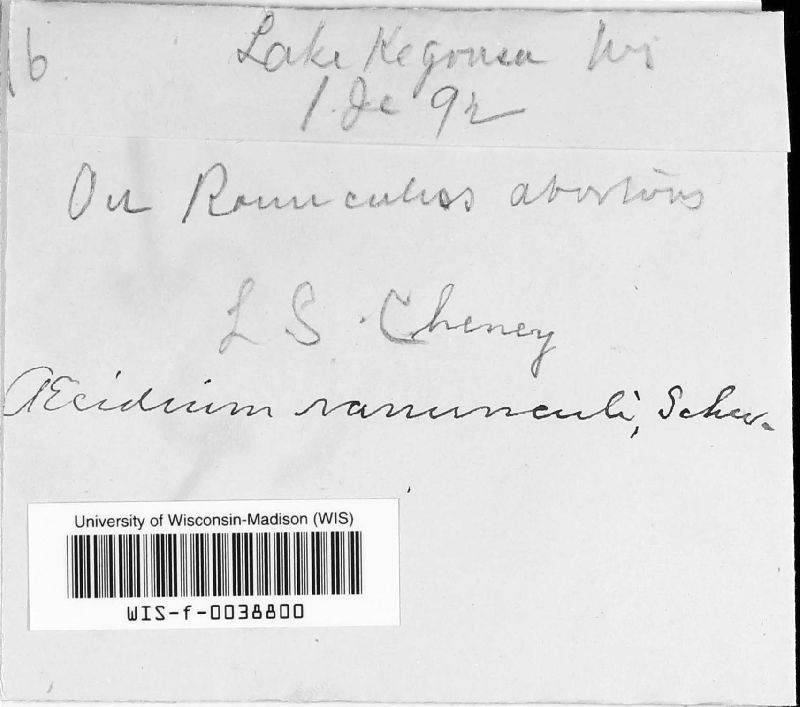 16
Lake Kegonsa Wis
1 Je 92
On Ranunculus abortivus
L S Cheney
Æcidium ranunculi, Schw.
University of Wisconsin-Madison (WIS)
WIS-f-0038800